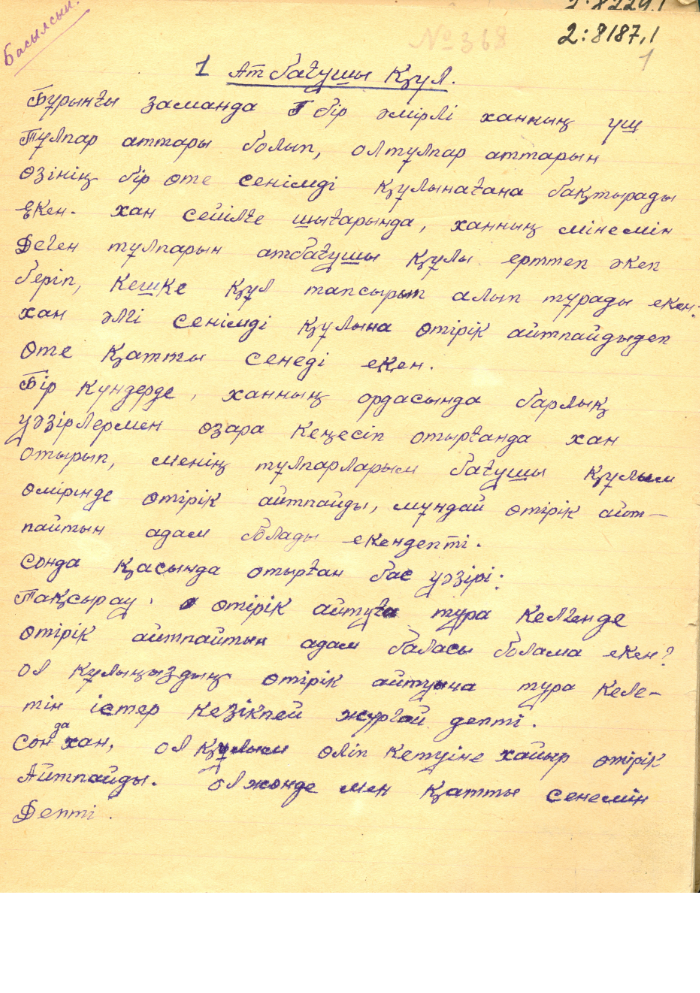 Басылсын.
№368
2:8187,1
1
1 Ат бағушы Құл.
Бұрынғы заманда бір әмірлі ханның үш
Тұлпар аттары болып, ол тұлпар аттарын
өзінің бір өте сенімді құлынағана бақтырады
Екен. хан сейілге шығарында, ханның мінемін
Деген тұлпарын атбағушы Құлы ерттеп әкеп
беріп, кешке Құл тапсырып алып тұрады екен.
хан әлгі сенімді құлына өтірік айтпайдыдеп
өте қатты сенеді екен.
Бір күндерде, ханның ордасында барлық
уәзірлермен өзара кеңесіп отырғанда хан
отырып, менің тұлпарларым бағушы құлым
өмірінде өтірік айтпайды, мұндай өтірік айт-
пайтын адам болады екендепті.
сонда қасында отырған бас уәзірі:
Тақсырау. өтірік айтуға тура келгенде
өтірік айтпайтын адам баласы болама екен?
ол құлыңыздың өтірік айтуына тура келе-
тін істер кезікпей жүргай депті.
Сонда хан, ол құлым өліп кетуіне хайыр өтірік
Айтпайды. Ол жөнде мен қатты сенемін
Депті.